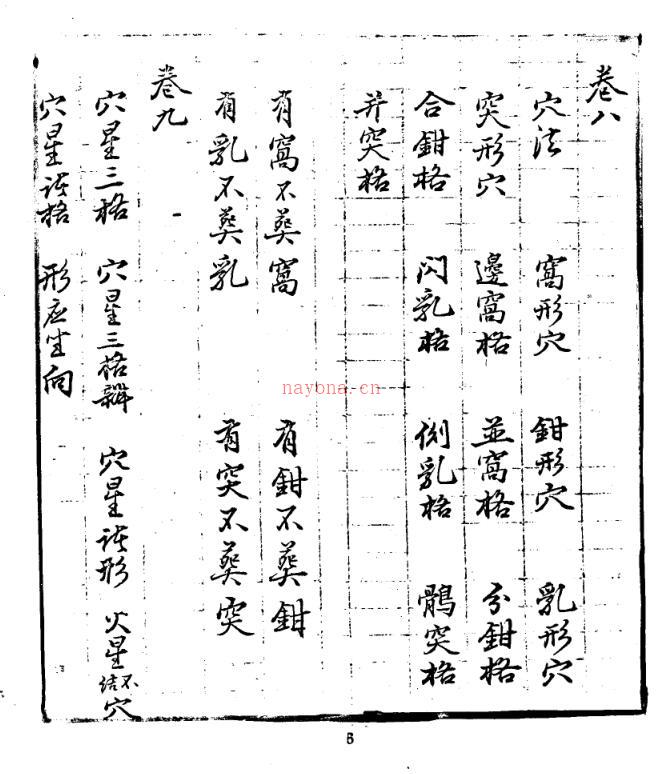 卷八
穴法 窩形穴 鉗形穴 乳形穴
突形穴 邊窩格 並窩格 分鉗格
合鉗格 閃乳格 側乳格 鶻突格
并突格
有窩不葬窩 有鉗不葬鉗
有乳不葬乳 有突不葬突
卷九
穴星三格 穴星三格辨 穴星諸形 火星不結穴
穴星諸格 形应坐向
nayona.cn
6